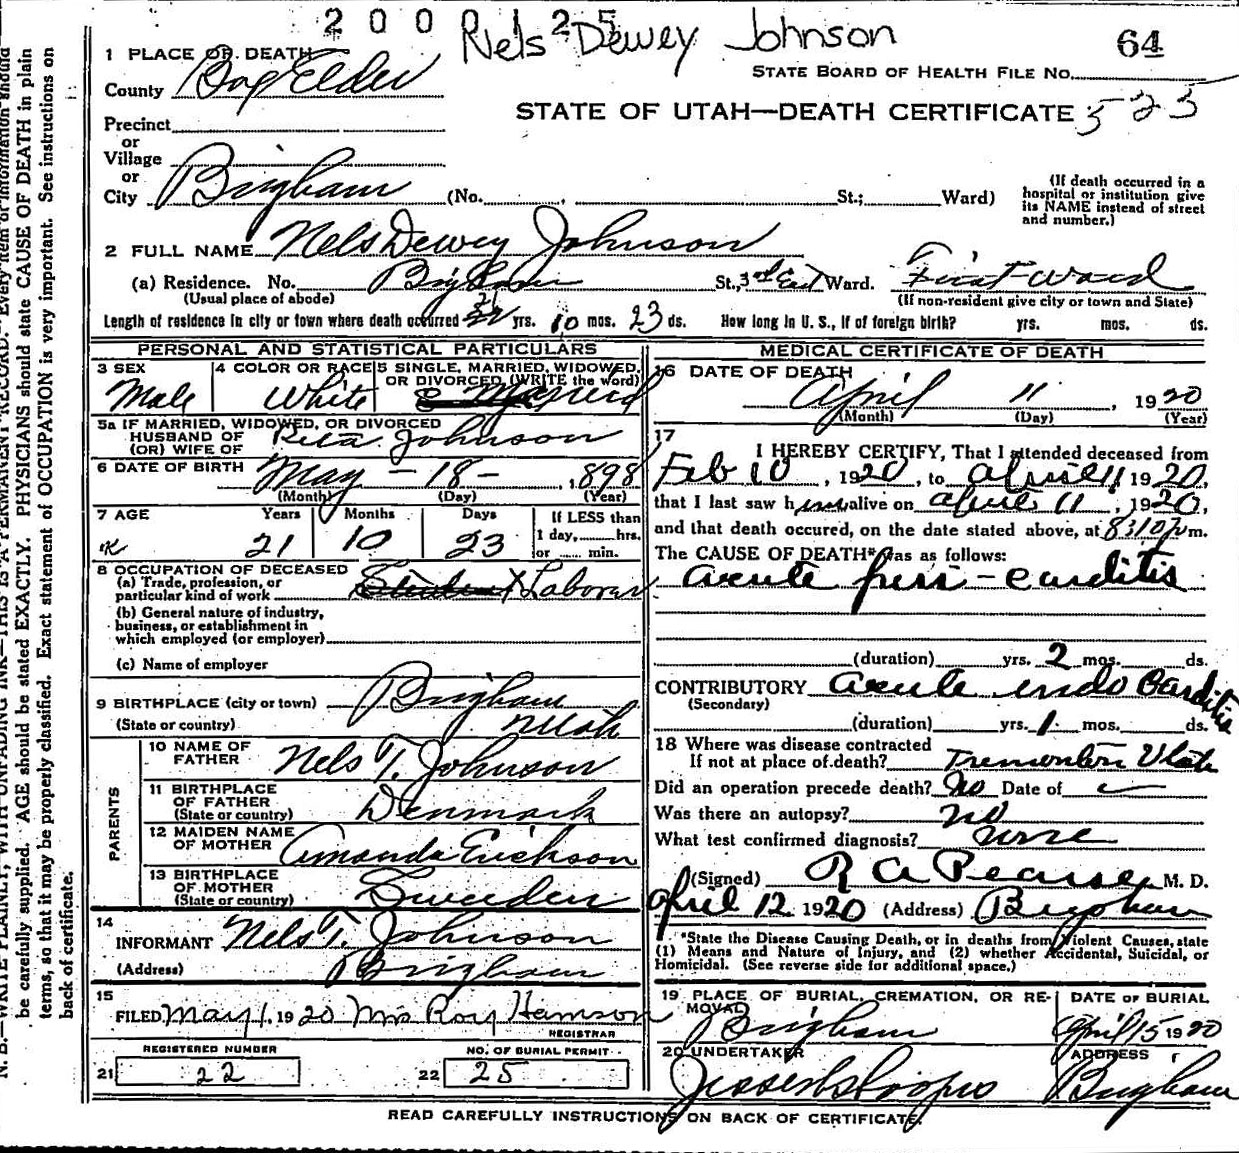 2 0 0 1 2 5
Nels Dewey Johnson
64
1 PLACE OF DEATH
STATE BOARD OF HEALTH FILE No.
County Box Elder
STATE OF UTAH—DEATH CERTIFICATE 525
Precinct
or
Village
or
City Brigham (No. , St.; Ward)
(If death occurred in a hospital or institution give its NAME instead of street and number.)
2 FULL NAME Nels Dewey Johnson
(a) Residence. No. Brigham St., 3rd East Ward. First Ward
(Usual place of abode) (If non-resident give city or town and State)
Length of residence in city or town where death occurred 21 yrs. 10 mos. 23 ds. How long in U. S., if of foreign birth? yrs. mos. ds.
PERSONAL AND STATISTICAL PARTICULARS
3 SEX Male
4 COLOR OR RACE White
5 SINGLE, MARRIED, WIDOWED, OR DIVORCED, (WRITE the word) Married
5a IF MARRIED, WIDOWED, OR DIVORCED
HUSBAND OF Reta Johnson
(OR) WIFE OF
6 DATE OF BIRTH May - 18 - , 1898
(Month) (Day) (Year)
7 AGE Years Months Days
21 10 23
If LESS than
1 day, hrs.
or min.
8 OCCUPATION OF DECEASED
(a) Trade, profession, or particular kind of work Student Laborer
(b) General nature of industry, business, or establishment in which employed (or employer)
(c) Name of employer
9 BIRTHPLACE (city or town) Brigham
(State or country) Utah
PARENTS
10 NAME OF FATHER Nels T. Johnson
11 BIRTHPLACE OF FATHER (State or country) Denmark
12 MAIDEN NAME OF MOTHER Amanda Erickson
13 BIRTHPLACE OF MOTHER (State or country) Sweeden
14
INFORMANT Nels T. Johnson
(Address) Brigham
15
FILED May 1, 1920 Mrs Roy Hamson
REGISTRAR
REGISTERED NUMBER
21 22
NO. OF BURIAL PERMIT
22 25
MEDICAL CERTIFICATE OF DEATH
16 DATE OF DEATH
April 11, 1920
(Month) (Day) (Year)
17
I HEREBY CERTIFY, That I attended deceased from
Feb 10, 1920, to April 11 1920,
that I last saw him alive on April 11, 1920,
and that death occured, on the date stated above, at 8:10 p m.
The CAUSE OF DEATH* was as follows:
acute peri-carditis
(duration) yrs. 2 mos. ds.
CONTRIBUTORY acute endo Carditis
(Secondary)
(duration) yrs. 1 mos. ds.
18 Where was disease contracted
If not at place of death? Tremonton Utah
Did an operation precede death? No Date of
Was there an autopsy? no
What test confirmed diagnosis? none
(Signed) R A Pearse M. D.
April 12 1920 (Address) Brigham
*State the Disease Causing Death, or in deaths from Violent Causes, state
(1) Means and Nature of Injury, and (2) whether Accidental, Suicidal, or
Homicidal. (See reverse side for additional space.)
19 PLACE OF BURIAL, CREMATION, OR REMOVAL
Brigham
DATE OF BURIAL
April 15 1920
20 UNDERTAKER
ADDRESS
Brigham
READ CAREFULLY INSTRUCTIONS ON BACK OF CERTIFICATE.
N. B.—WRITE PLAINLY, WITH UNFADING INK—THIS IS A PERMANENT RECORD. Every item of information should
be carefully supplied. AGE should be stated EXACTLY. PHYSICIANS should state CAUSE OF DEATH in plain
terms, so that it may be properly classified. Exact statement of OCCUPATION is very important. See instructions on
back of certificate.